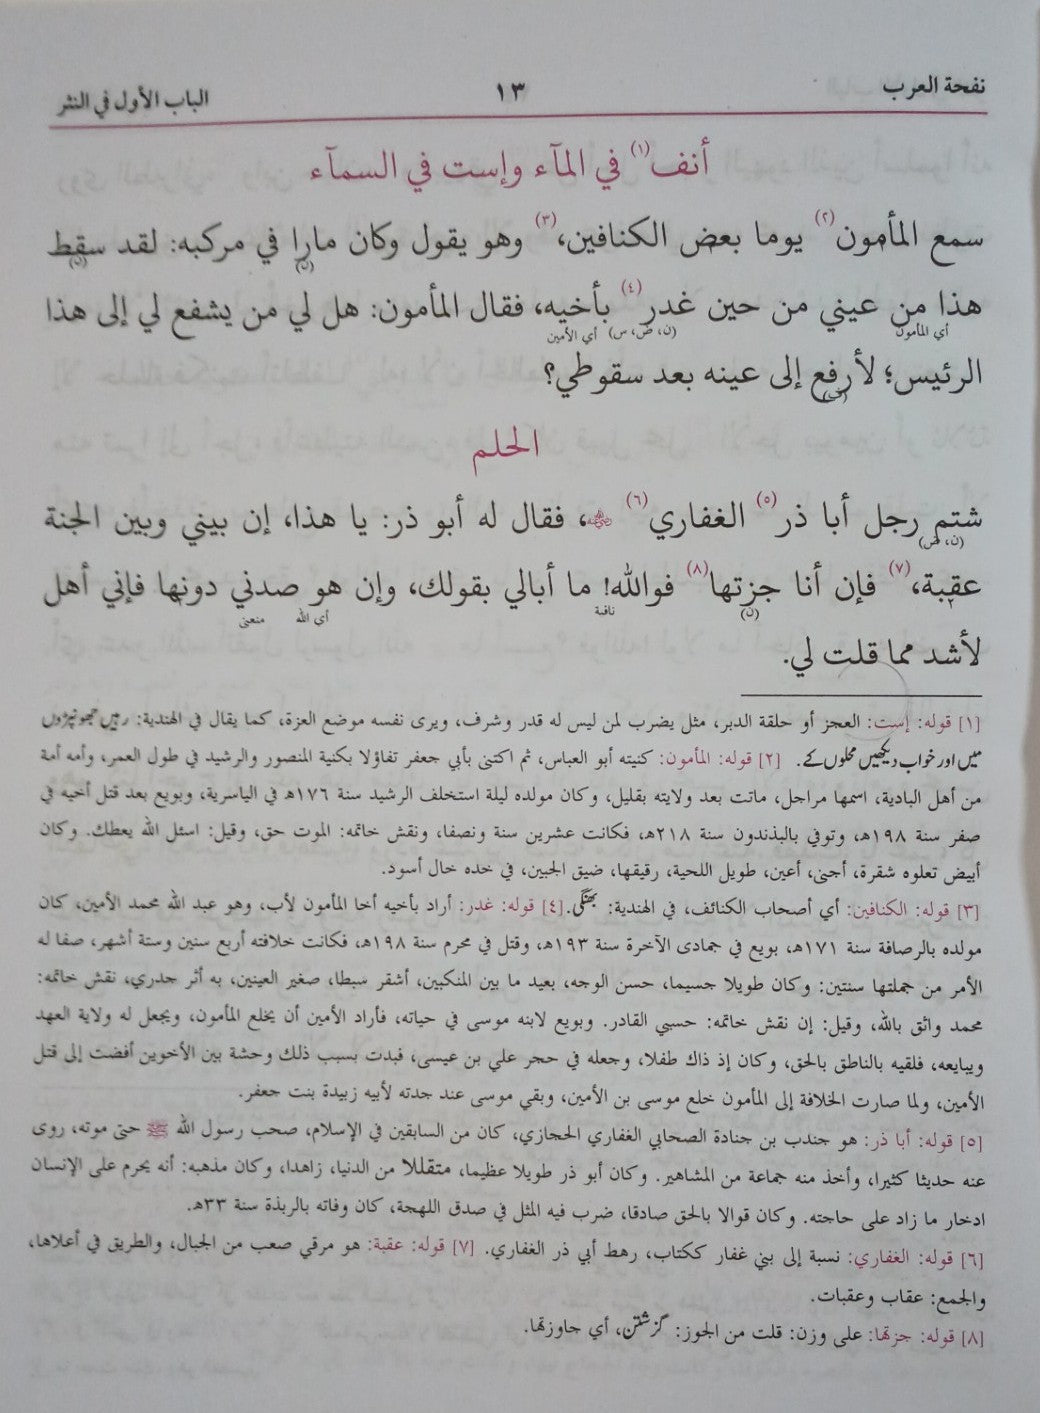 نفحة العرب
١٣
الباب الأول في النثر
أنف(١) في المآء وإست في السمآء
سمع المأمون(٢) يوما بعض الكنافين،(٣) وهو يقول وكان مارا في مركبه: لقد سقط
(ن) (ن)
هذا من عيني من حين غدر(٤) بأخيه، فقال المأمون: هل لي من يشفع لي إلى هذا
أي المأمون (ن، ض، س) أي الأمين
الرئيس؛ لأرفع إلى عينه بعد سقوطي؟
الحلم
شتم رجل أبا ذر(٥) الغفاري(٦) ﷺ، فقال له أبو ذر: يا هذا، إن بيني وبين الجنة
(ن، ض)
عقبة،(٧) فإن أنا جزتها(٨) فوالله! ما أبالي بقولك، وإن هو صدني دونها فإني أهل
(ن) نافية أي الله منعني
لأشد مما قلت لي.
[١] قوله: إست: العجز أو حلقة الدبر، مثل يضرب لمن ليس له قدر وشرف، ويرى نفسه موضع العزة، كما يقال في الهندية: رہیں جھونپڑوں
میں اور خواب دیکھیں محلوں کے. [٢] قوله: المأمون: كنيته أبو العباس، ثم اكتنى بأبي جعفر تفاؤلا بكنية المنصور والرشيد في طول العمر، وأمه أمة
من أهل البادية، اسمها مراجل، ماتت بعد ولايته بقليل، وكان مولده ليلة استخلف الرشيد سنة ١٧٦هـ في الياسرية، وبويع بعد قتل أخيه في
صفر سنة ١٩٨هـ، وتوفي بالبذندون سنة ٢١٨هـ، فكانت عشرين سنة ونصفا، ونقش خاتمه: الموت حق، وقيل: اسئل الله يعطك. وكان
أبيض تعلوه شقرة، أجنى، أعين، طويل اللحية، رقيقها، ضيق الجبين، في خده خال أسود.
[٣] قوله: الكنافين: أي أصحاب الكنائف، في الهندية: بھنگی. [٤] قوله: غدر: أراد بأخيه أخا المأمون لأب، وهو عبد الله محمد الأمين، كان
مولده بالرصافة سنة ١٧١هـ، بويع في جمادى الآخرة سنة ١٩٣هـ، وقتل في محرم سنة ١٩٨هـ، فكانت خلافته أربع سنين وستة أشهر، صفا له
الأمر من جملتها سنتين: وكان طويلا جسيما، حسن الوجه، بعيد ما بين المنكبين، أشقر سبطا، صغير العينين، به أثر جدري، نقش خاتمه:
محمد واثق بالله، وقيل: إن نقش خاتمه: حسبي القادر. وبويع لابنه موسى في حياته، فأراد الأمين أن يخلع المأمون، ويجعل له ولاية العهد
ويبايعه، فلقبه بالناطق بالحق، وكان إذ ذاك طفلا، وجعله في حجر علي بن عيسى، فبدت بسبب ذلك وحشة بين الأخوين أفضت إلى قتل
الأمين، ولما صارت الخلافة إلى المأمون خلع موسى بن الأمين، وبقي موسى عند جدته لأبيه زبيدة بنت جعفر.
[٥] قوله: أبا ذر: هو جندب بن جنادة الصحابي الغفاري الحجازي، كان من السابقين في الإسلام، صحب رسول الله ﷺ حتى موته، روى
عنه حديثا كثيرا، وأخذ منه جماعة من المشاهير. وكان أبو ذر طويلا عظيما، متقللا من الدنيا، زاهدا، وكان مذهبه: أنه يحرم على الإنسان
ادخار ما زاد على حاجته. وكان قوالا بالحق صادقا، ضرب فيه المثل في صدق اللهجة، كان وفاته بالربذة سنة ٣٣هـ.
[٦] قوله: الغفاري: نسبة إلى بني غفار ككتاب، رهط أبي ذر الغفاري. [٧] قوله: عقبة: هو مرقي صعب من الجبال، والطريق في أعلاها،
والجمع: عقاب وعقبات.
[٨] قوله: جزتها: على وزن: قلت من الجوز: گزشتن، أي جاوزتها.